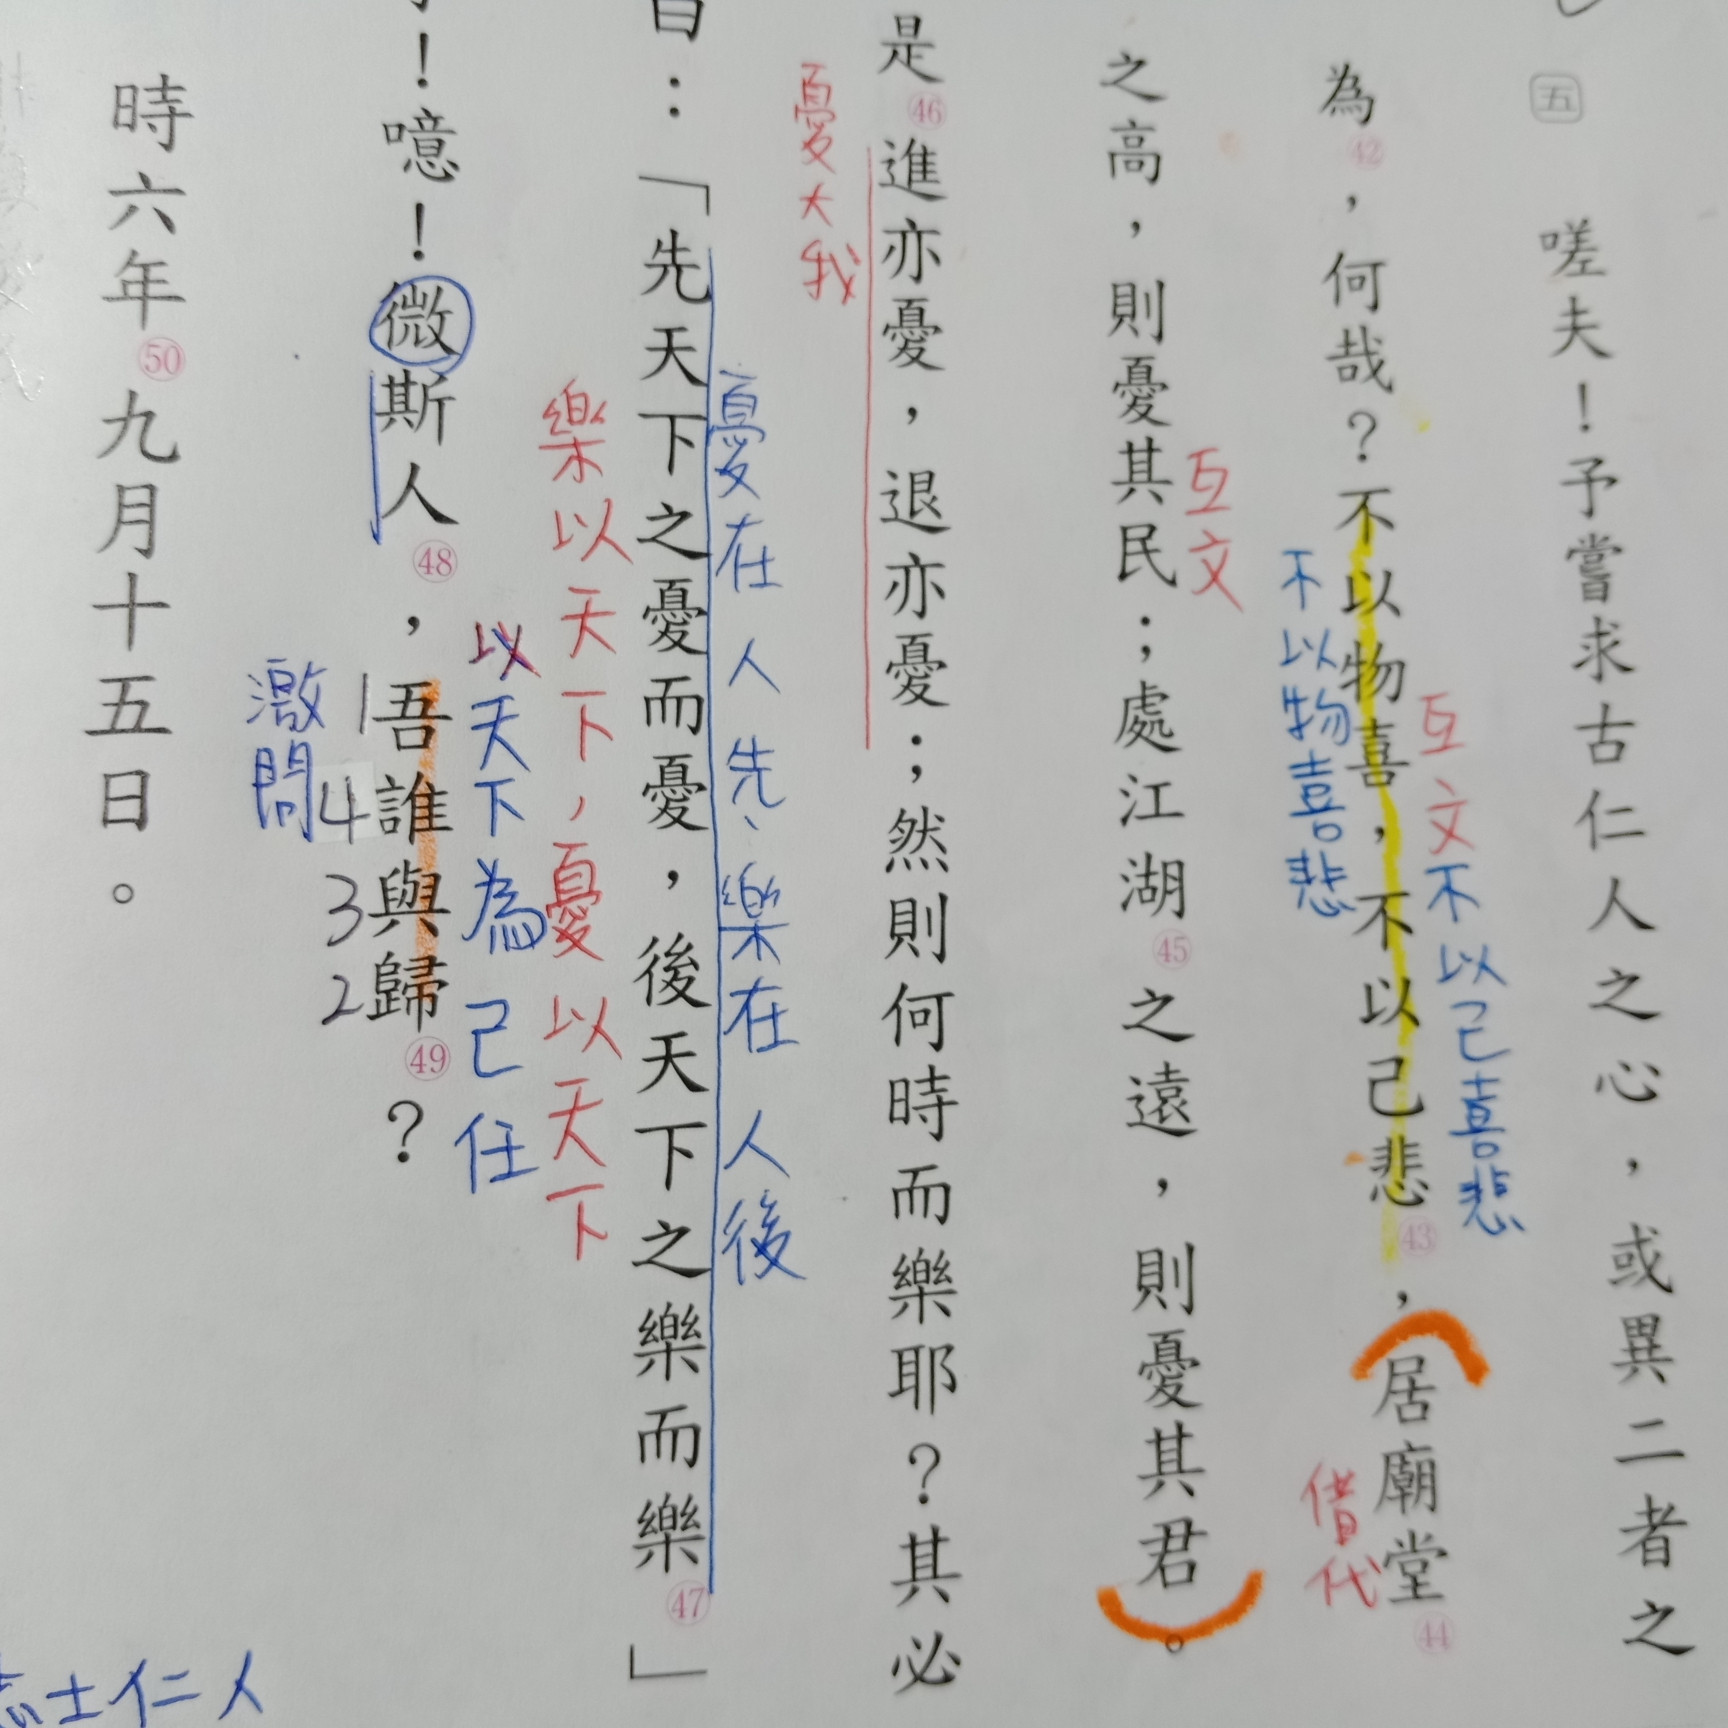 五
嗟夫！予嘗求古仁人之心，或異二者之
互文不以己喜悲
為㊷，何哉？不以物喜，不以己悲㊸，居廟堂㊹
不以物喜悲
借代
互文
之高，則憂其民；處江湖㊺之遠，則憂其君。
是㊻進亦憂，退亦憂；然則何時而樂耶？其必
憂大我
憂在人先、樂在人後
曰：「先天下之憂而憂，後天下之樂而樂㊼」
樂以天下，憂以天下
以天下為己任
！噫！微斯人㊽，吾誰與歸㊾？
1 4 3 2
激問
時六年㊿九月十五日。
志士仁人